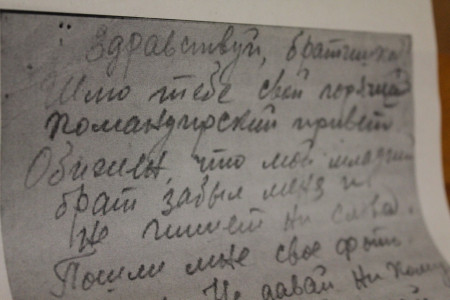 "Здравствуй, братишка!
Шлю тебе свой горячий
командирский привет
Обижен, что мой младший
брат забыл меня и
не пишет ни слова.
Пошли мне свое фото.
Не давай никому